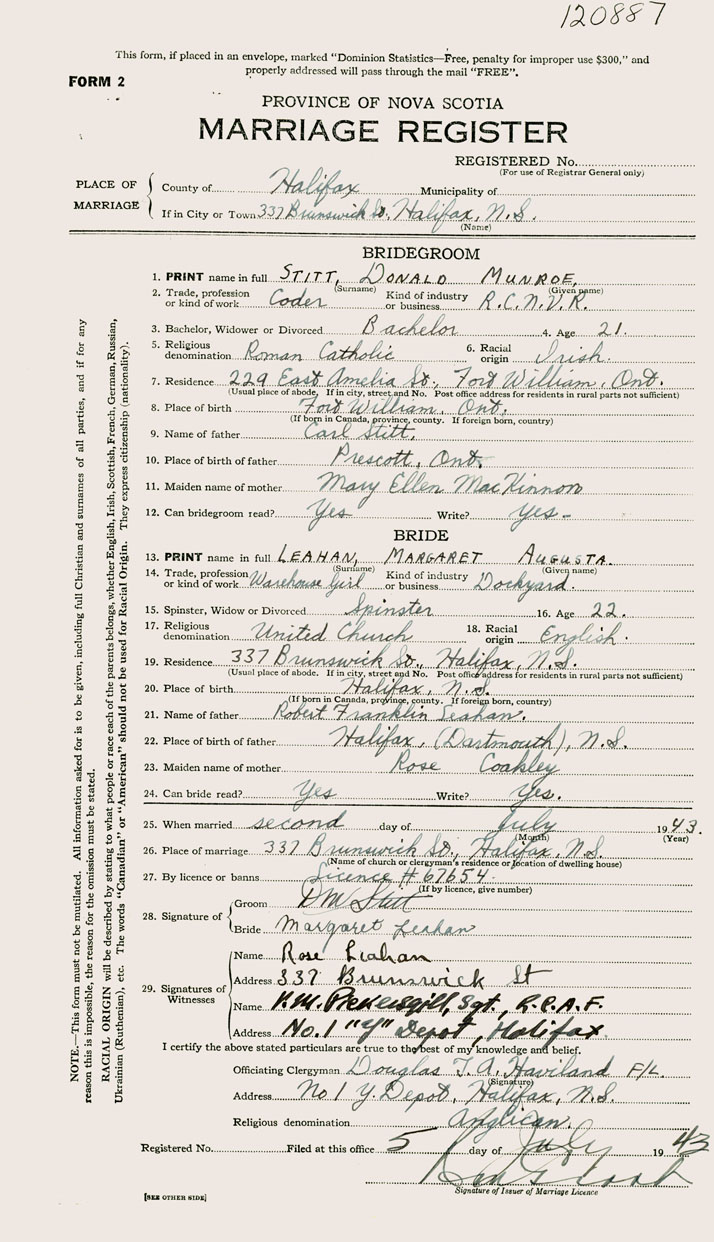 120887
This form, if placed in an envelope, marked "Dominion Statistics—Free, penalty for improper use $300," and
properly addressed will pass through the mail "FREE".
FORM 2
PROVINCE OF NOVA SCOTIA
MARRIAGE REGISTER
REGISTERED No.
(For use of Registrar General only)
PLACE OF MARRIAGE
County of Halifax Municipality of
If in City or Town 337 Brunswick St. Halifax, N.S.
(Name)
BRIDEGROOM
1. PRINT name in full STITT, DONALD MUNROE,
(Surname) (Given name)
2. Trade, profession or kind of work Coder Kind of industry or business R.C.N.V.R.
3. Bachelor, Widower or Divorced Bachelor 4. Age 21.
5. Religious denomination Roman Catholic 6. Racial origin Irish.
7. Residence 229 East Amelia St., Fort William, Ont.
(Usual place of abode. If in city, street and No. Post office address for residents in rural parts not sufficient)
8. Place of birth Fort William, Ont.
(If born in Canada, province, county. If foreign born, country)
9. Name of father Carl Stitt.
10. Place of birth of father Prescott, Ont.
11. Maiden name of mother Mary Ellen MacKinnon
12. Can bridegroom read? Yes Write? Yes -
BRIDE
13. PRINT name in full LEAHAN, MARGARET AUGUSTA.
(Surname) (Given name)
14. Trade, profession or kind of work Warehouse Girl Kind of industry or business Dockyard.
15. Spinster, Widow or Divorced Spinster 16. Age 22.
17. Religious denomination United Church 18. Racial origin English.
19. Residence 337 Brunswick St., Halifax, N.S.
(Usual place of abode. If in city, street and No. Post office address for residents in rural parts not sufficient)
20. Place of birth Halifax, N.S.
(If born in Canada, province, county. If foreign born, country)
21. Name of father Robert Franklin Leahan.
22. Place of birth of father Halifax, (Dartmouth), N.S.
23. Maiden name of mother Rose Coakley
24. Can bride read? Yes Write? Yes.
25. When married second day of July 1943.
(Month) (Year)
26. Place of marriage 337 Brunswick St., Halifax, N.S.
(Name of church or clergyman's residence or location of dwelling house)
27. By licence or banns Licence # 67654.
(If by licence, give number)
28. Signature of
Groom DM Stitt
Bride Margaret Leahan
29. Signatures of Witnesses
Name Rose Leahan
Address 337 Brunswick St
Name Pickersgill, Sgt., R.C.A.F.
Address No. 1 "Y" Depot, Halifax
I certify the above stated particulars are true to the best of my knowledge and belief.
Officiating Clergyman Douglas T. A. Haviland F/L.
(Signature)
Address No 1 Y. Depot, Halifax, N.S.
Religious denomination Anglican.
Registered No. Filed at this office 5 day of July 1943
Signature of Issuer of Marriage Licence
[SEE OTHER SIDE]
NOTE.—This form must not be mutilated. All information asked for is to be given, including full Christian and surnames of all parties, and if for any
reason this is impossible, the reason for the omission must be stated.
RACIAL ORIGIN will be described by stating to what people or race each of the parents belongs, whether English, Irish, Scottish, French, German, Russian,
Ukrainian (Ruthenian), etc. The words "Canadian" or "American" should not be used for Racial Origin. They express citizenship (nationality).